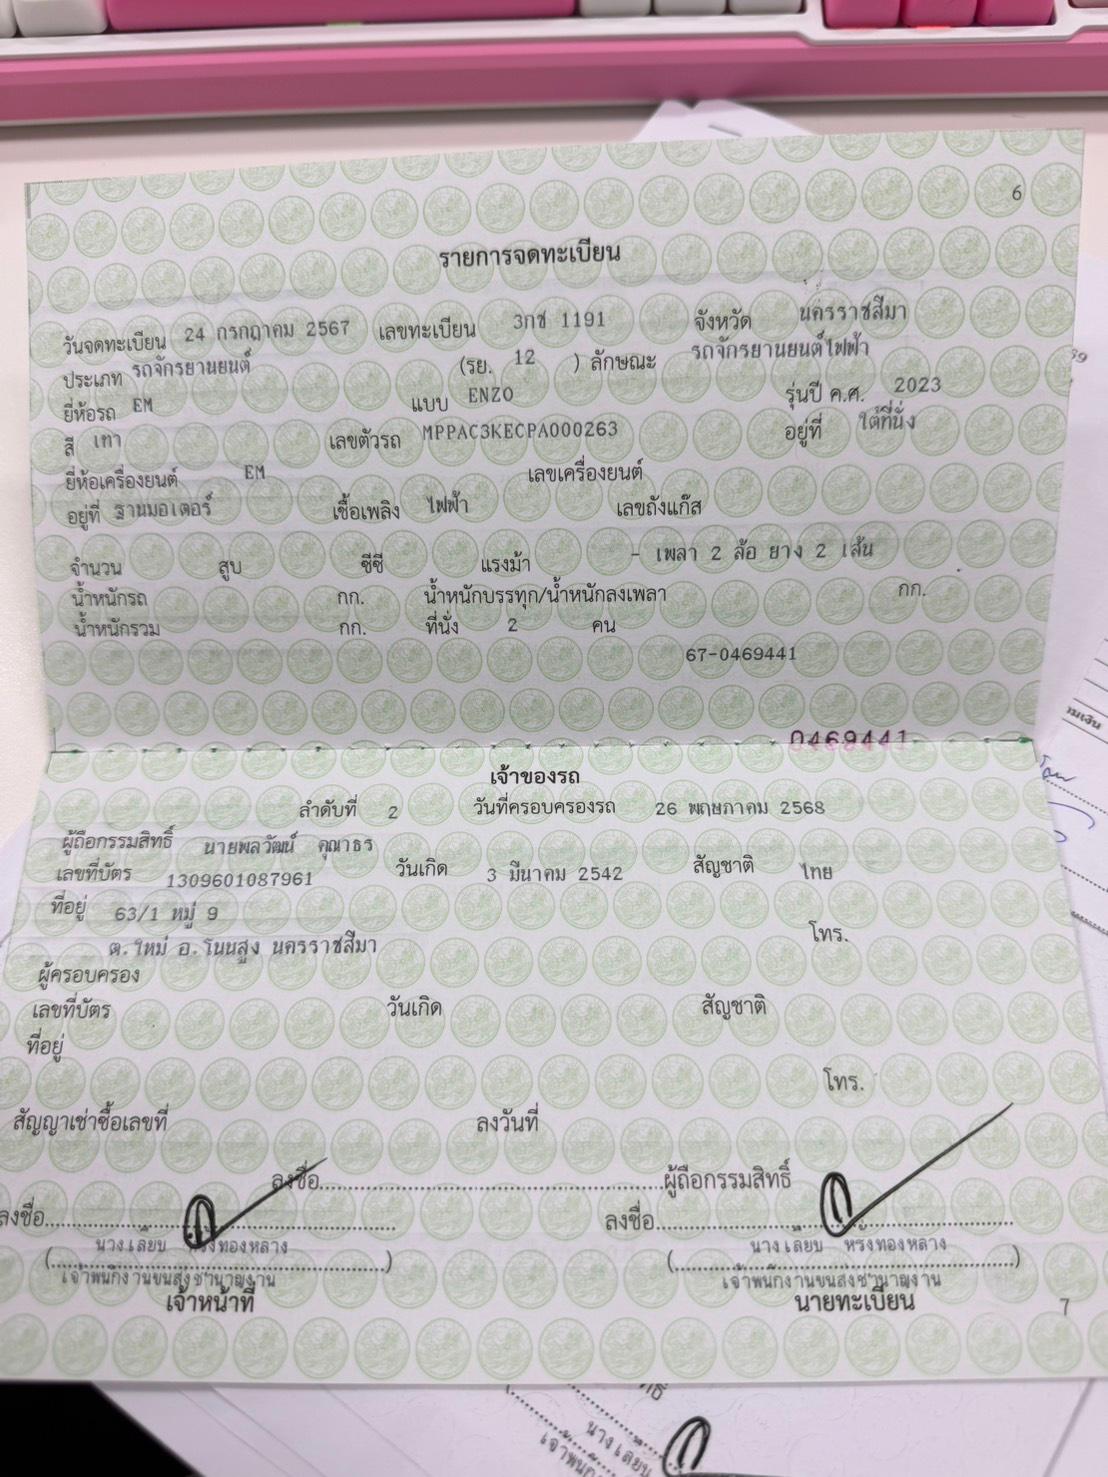 6
รายการจดทะเบียน
วันจดทะเบียน 24 กรกฎาคม 2567 เลขทะเบียน 3กช 1191 จังหวัด นครราชสีมา
ประเภท รถจักรยานยนต์ (รย. 12 ) ลักษณะ รถจักรยานยนต์ไฟฟ้า
ยี่ห้อรถ EM แบบ ENZO รุ่นปี ค.ศ. 2023
สี เทา เลขตัวรถ MPPAC3KECPA000263 อยู่ที่ ใต้ที่นั่ง
ยี่ห้อเครื่องยนต์ EM เลขเครื่องยนต์
อยู่ที่ ฐานมอเตอร์ เชื้อเพลิง ไฟฟ้า เลขถังแก๊ส
จำนวน สูบ ซีซี แรงม้า - เพลา 2 ล้อ ยาง 2 เส้น
น้ำหนักรถ กก. น้ำหนักบรรทุก/น้ำหนักลงเพลา กก.
น้ำหนักรวม กก. ที่นั่ง 2 คน
67-0469441
0469441
เจ้าของรถ
ลำดับที่ 2 วันที่ครอบครองรถ 26 พฤษภาคม 2568
ผู้ถือกรรมสิทธิ์ นายพลวัฒน์ คุณาธร
เลขที่บัตร 1309601087961 วันเกิด 3 มีนาคม 2542 สัญชาติ ไทย
ที่อยู่ 63/1 หมู่ 9
ต.ใหม่ อ.โนนสูง นครราชสีมา โทร.
ผู้ครอบครอง
เลขที่บัตร วันเกิด สัญชาติ
ที่อยู่
โทร.
สัญญาเช่าซื้อเลขที่ ลงวันที่
ลงชื่อ ผู้ถือกรรมสิทธิ์
ลงชื่อ ลงชื่อ
(นางเลียบ หรั่งทองหลาง) (นางเลียบ หรั่งทองหลาง)
เจ้าพนักงานขนส่งชำนาญงาน เจ้าพนักงานขนส่งชำนาญงาน
เจ้าหน้าที่ นายทะเบียน
7
นางเลียบ